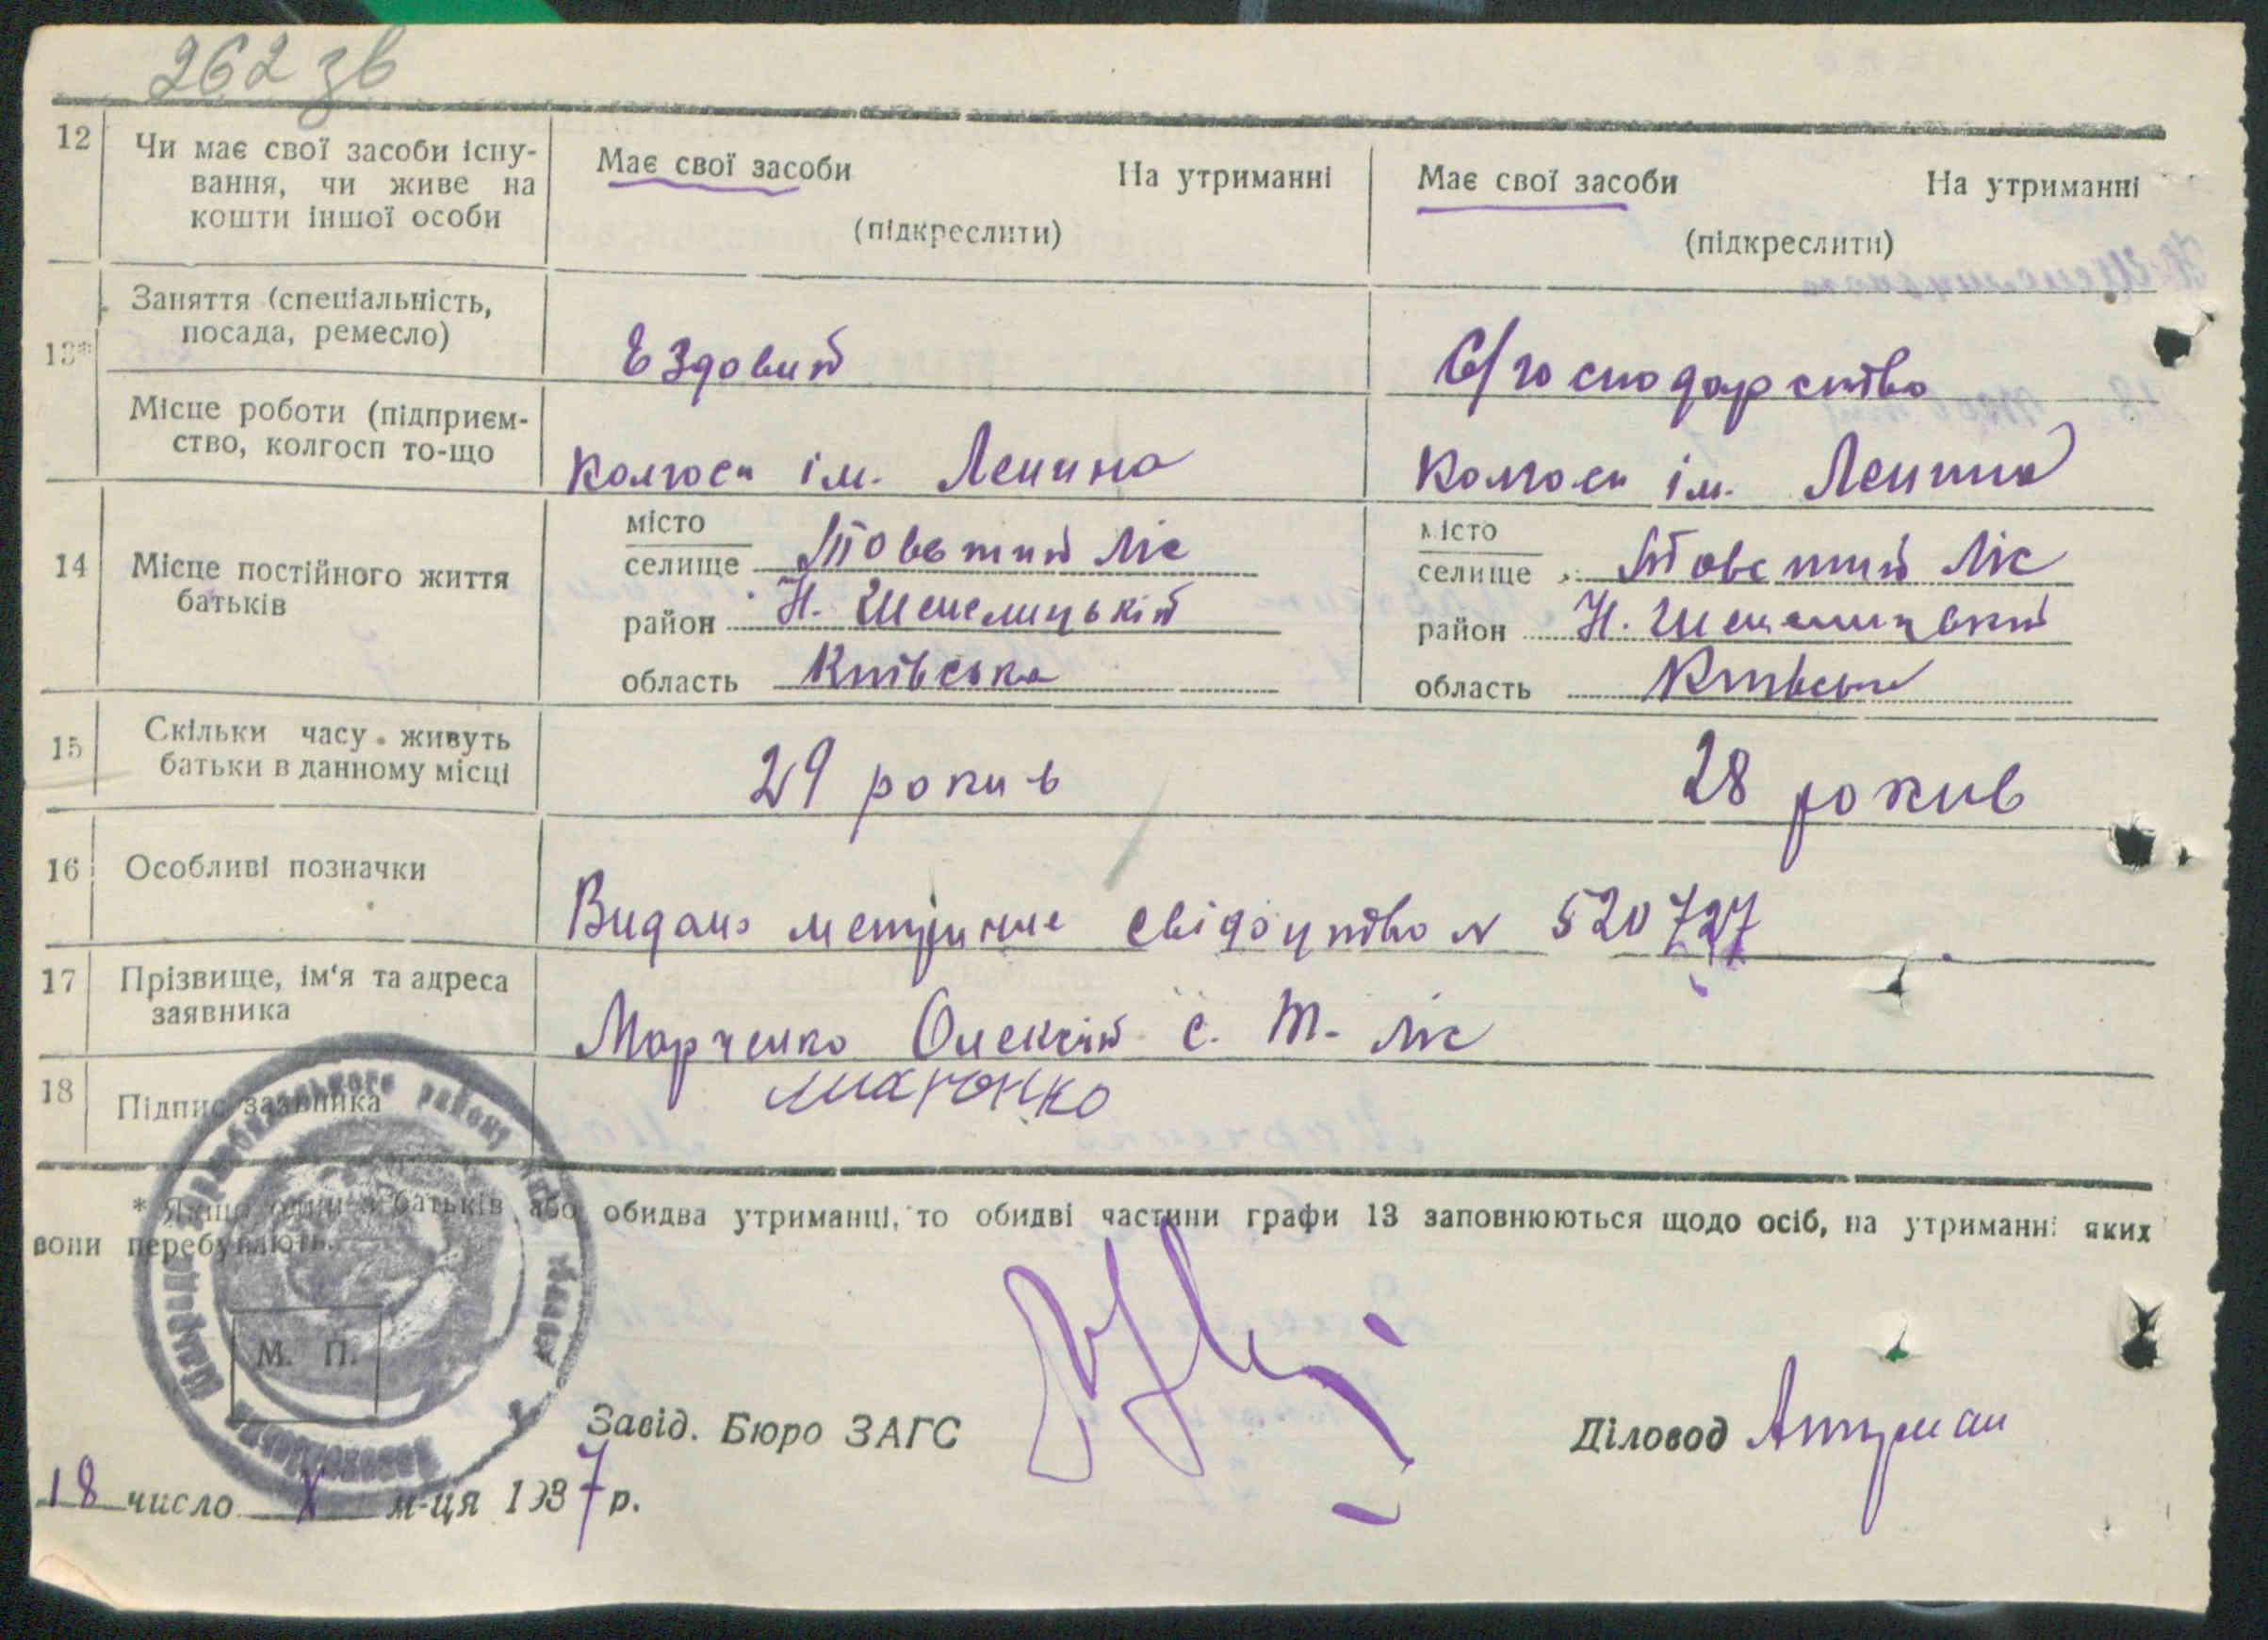 262 зв
12 Чи має свої засоби існу-
вання, чи живе на
кошти іншої особи
Має свої засоби На утриманні
(підкреслити)
Має свої засоби На утриманні
(підкреслити)
13* Заняття (спеціальність,
посада, ремесло)
Ездовий
С/господарство
Місце роботи (підприєм-
ство, колгосп то-що
Колгосп ім. Ленина
Колгосп ім. Ленина
14 Місце постійного життя
батьків
місто
селище Товстий Ліс
район Н. Шепелицький
область Київська
місто
селище Товстий Ліс
район Н. Шепелицький
область Київська
15 Скільки часу живуть
батьки в данному місці
29 рокив
28 рокив
16 Особливі позначки
Видано метричне свідоцтво N 520727
17 Прізвище, ім'я та адреса
заявника
Марченко Олексій с. Т. Ліс
18 Підпис заявника
* Якщо один з батьків або обидва утриманці, то обидві частини графи 13 заповнюються щодо осіб, на утриманні яких
вони перебувають.
М. П.
Завід. Бюро ЗАГС
Діловод
18 число X м-ця 1937 р.